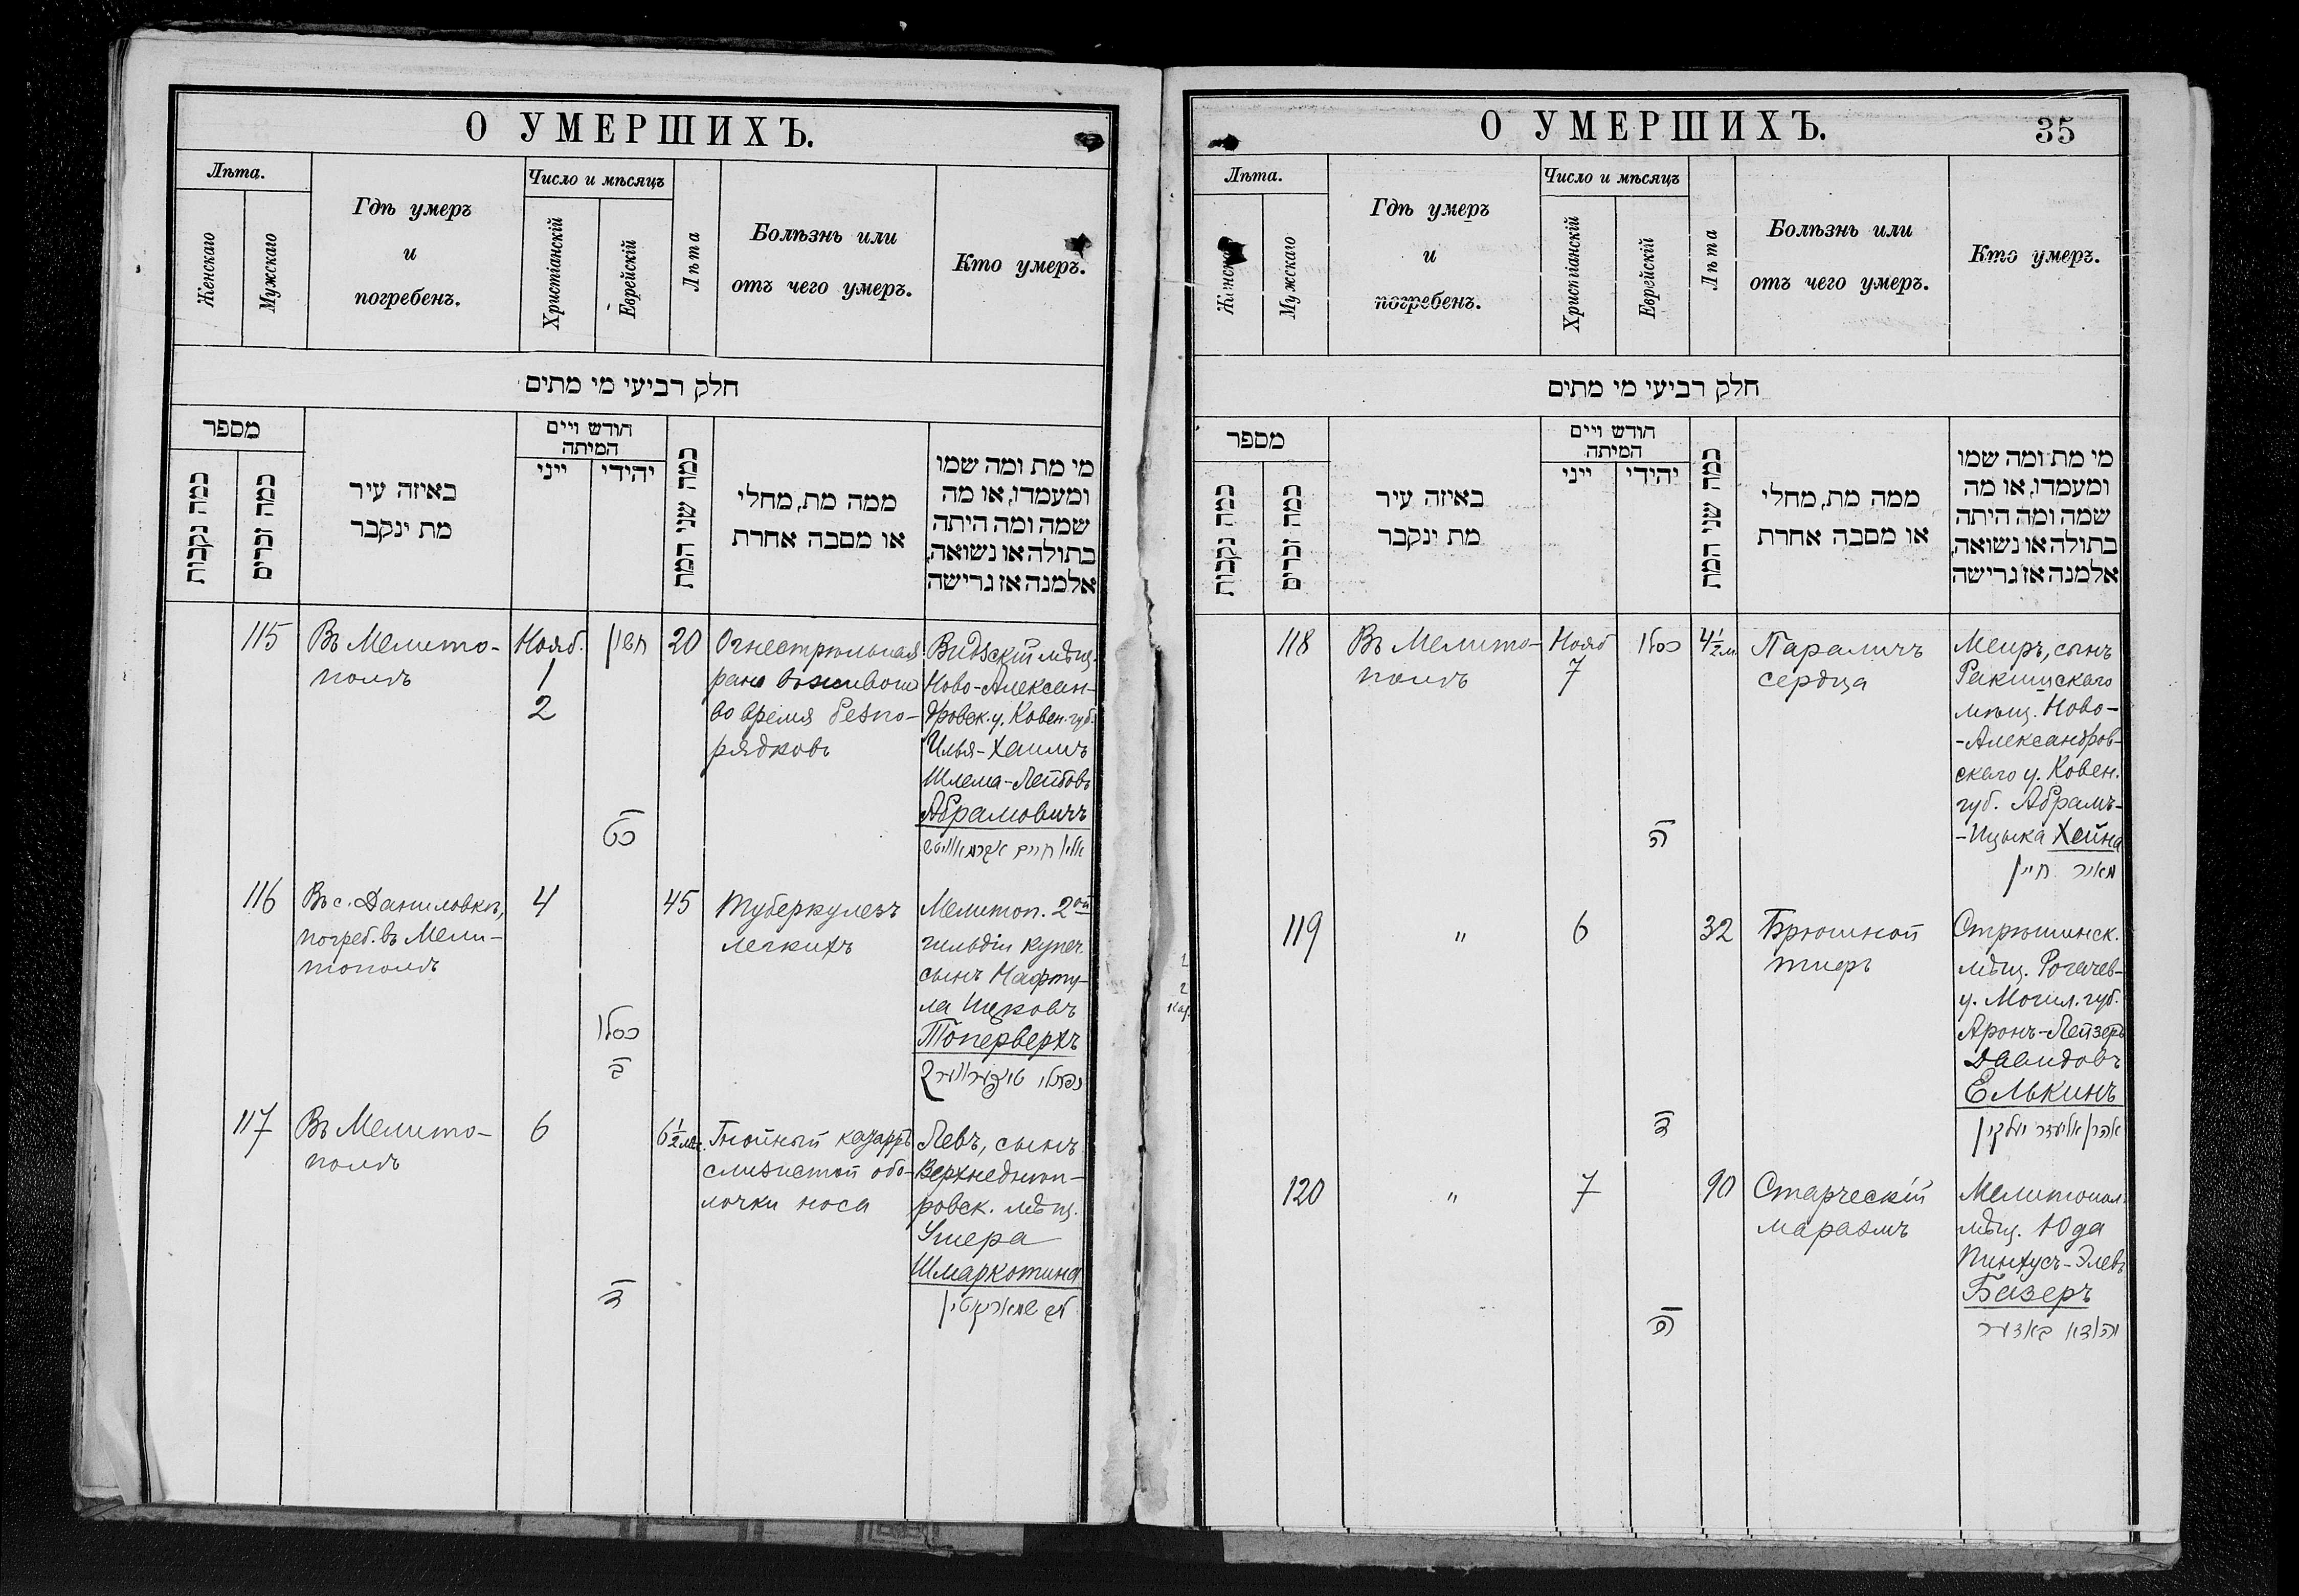 О УМЕРШИХЪ.
Лѣта.
Женскаго
Мужскаго
Гдѣ умеръ
и
погребенъ.
Число и мѣсяцъ
Христіанскій
Еврейскій
Лѣта
Болѣзнь или
отъ чего умеръ.
Кто умеръ.
חלק רביעי מי מתים
מספר
כמה נקבות
כמה זכרים
באיזה עיר
מת ינקבר
חודש ויים
המיתה
ייני
יהידי
כמה שני המת
ממה מת, מחלי
או מסבה אחרת
מי מת ומה שמו
ומעמדו, או מה
שמה ומה היתה
בתולה או נשואה,
אלמנה אז גרישה
115
Въ Мелито-
полѣ
Нояб.
1
2
חשון
כט
20
Огнестрѣльная
рана въ животъ
во время безпо-
рядковъ
Видзскій мѣщ.
Ново-Алексан-
дровск. у. Ковен. губ.
Илья-Хаимъ
Шлема-Лейбовъ
Абрамовичъ
116
Въ с. Даниловкѣ,
погреб. въ Мели-
тополѣ
4
כסלו
ב
45
Туберкулезъ
легкихъ
Мелитоп. 2ой
гильдіи купеч.
сынъ Нафту-
ла Ицковъ
Топерверхъ
117
Въ Мелито-
полѣ
6
ד
6½ мѣс.
Гнойный катарръ
слизистой обо-
лочки носа
Левъ, сынъ
Верхнеднѣп-
ровск. мѣщ.
Ушера
Шмаркотина
לב שמארקאטין
О УМЕРШИХЪ.
35
Лѣта.
Женскаго
Мужскаго
Гдѣ умеръ
и
погребенъ.
Число и мѣсяцъ
Христіанскій
Еврейскій
Лѣта
Болѣзнь или
отъ чего умеръ.
Кто умеръ.
חלק רביעי מי מתים
מספר
כמה נקבות
כמה זכרים
באיזה עיר
מת ינקבר
חודש ויים
המיתה
ייני
יהידי
כמה שני המת
ממה מת, מחלי
או מסבה אחרת
מי מת ומה שמו
ומעמדו, או מה
שמה ומה היתה
בתולה או נשואה,
אלמנה אז גרישה
118
Въ Мелито-
полѣ
Нояб
7
כסלו
ה
4½ м
Параличъ
сердца
Меиръ, сынъ
Ракишскаго
мѣщ. Ново-
-Александров-
скаго у. Ковен.
губ. Абрамъ-
-Ицыка Хейна
מאיר חיין
119
"
6
ד
32
Брюшной
тифъ
Стрѣшинск.
мѣщ. Рогачев-
у. Могил. губ.
Аронъ-Лейзеръ
Давидовъ
Елькинъ
אהרן אליעזר יעלקין
120
"
7
ה
90
Старческій
маразмъ
Мелитопол.
мѣщ. Юда
Пинхусъ-Элевъ
Базеръ
יהודא באזער